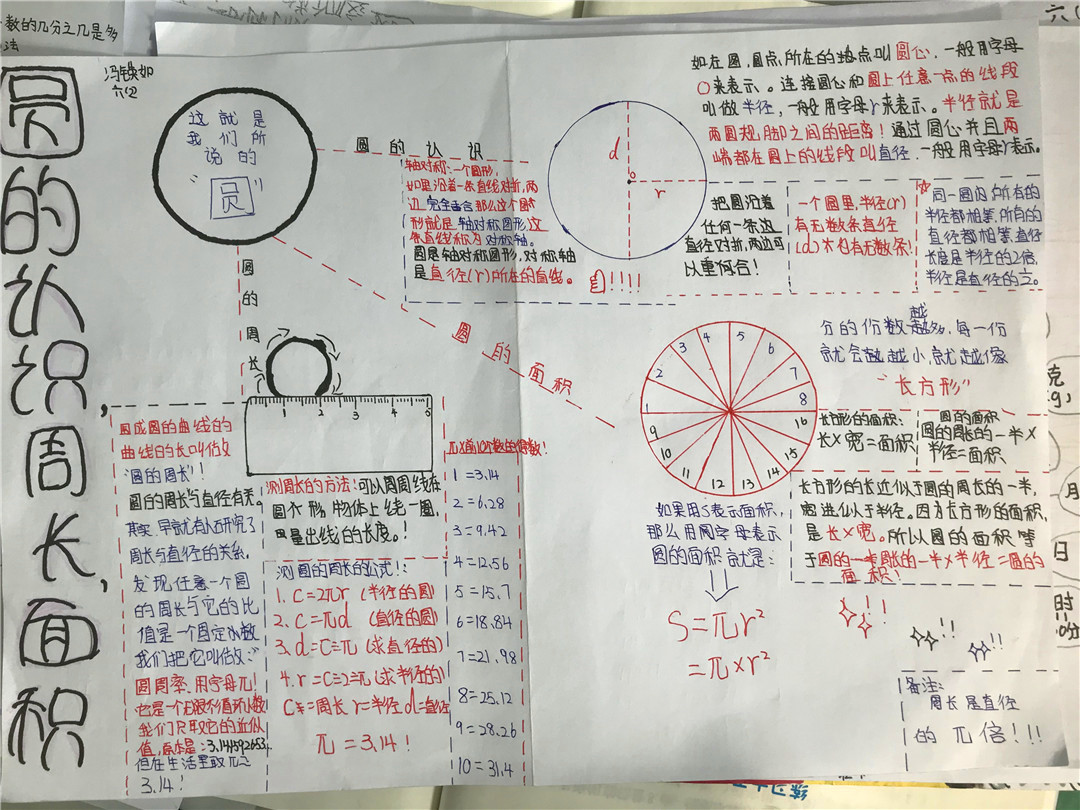 数的几分之几是多
法
六(
圆的认识,周长,面积
六(2)
这就是
我们所
说的
“圆”
圆的认识
轴对称:一个图形,
如果沿着一条直线对折,两
边完全重合那么这个图
形就是轴对称图形,这
条直线称为对称轴。
圆是轴对称图形,对称轴
是直径(r)所在的直线。
d
o
r
如在圆,圆点所在的地点叫圆心,一般用字母
O来表示。连接圆心和圆上任意一点的线段
叫做半径,一般用字母r来表示。半径就是
两圆规脚之间的距离!通过圆心并且两
端都在圆上的线段叫直径,一般用字母r表示。
把圆沿着
任何一条边
直径对折,两边可
以重合!
!!!!
一个圆里,半径(r)
有无数条直径
(d)也有无数条!
同一圆内,所有的
半径都相等,所有的
直径都相等,直径
长度是半径的2倍,
半径是直径的½。
圆的周长
1 2 3 4 5
圆的面积
围成圆的曲线的
曲线的长叫做
“圆的周长”!
圆的周长与直径有关。
其实,早就有人研究了
周长与直径的关系,
发现任意一个圆
的周长与它的比
值是一个固定小数
我们把它叫做:
圆周率,用字母π!
它是一个无限不循环小数
我们只取它的近似
值,原本是:3.141592653,
但在生活里取π≈
3.14!
测周长的方法!可以用线在
圆形物体上绕一圈,
量出线的长度。!
测圆的周长的公式!:
1. C=2πr (半径的圆)
2. C=πd (直径的圆)
3. d=C÷π (求直径的)
4. r=C÷2÷π (求半径的)
C=周长 r=半径 d=直径
π=3.14!
π×前10数的得数!
1=3.14
2=6.28
3=9.42
4=12.56
5=15.7
6=18.84
7=21.98
8=25.12
9=28.26
10=31.4
1 2 3 4 5 6 7 8
9 10 11 12 13 14 15 16
分的份数越多,每一份
就会越小,就越像
“长方形”
长方形的面积:
长×宽=面积
圆的面积
圆的周长的一半×
半径=面积
长方形的长近似于圆的周长的一半,
宽近似于半径。因为长方形的面积,
是长×宽。所以圆的面积等
于圆的周长的一半×半径=圆的
面积!
如果用S表示面积,
那么用字母表示
圆的面积就是:
S=πr²
=π×r²
!!
!!
!!
备注:
周长是直径
的π倍!!!
月
日
时